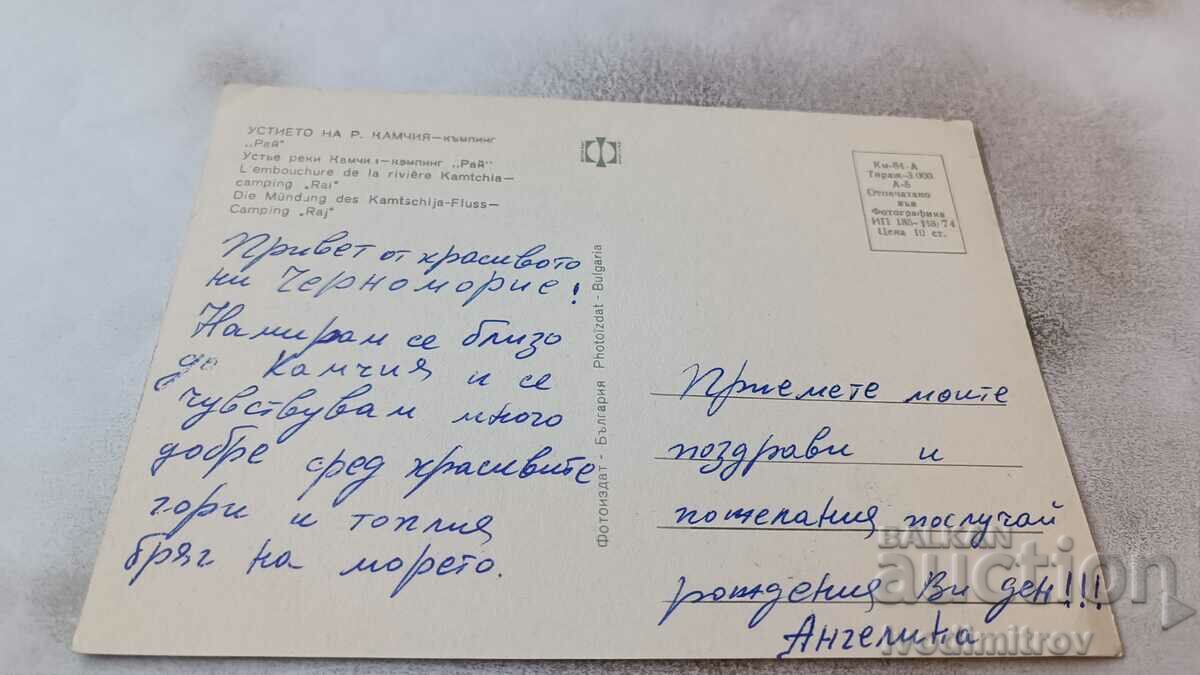 УСТИЕТО НА Р. КАМЧИЯ—къмпинг
„Рай"
Устье реки Камчия—кемпинг „Рай"
L'embouchure de la rivière Kamtchia—
camping „Rai"
Die Mündung des Kamtschija-Fluss—
Camping „Raj"
Привет от красивото
ни Черноморие!
Намирам се близо
до Камчия и се
чувствувам много
добре сред красивите
гори и топлия
бряг на морето.
Фотоиздат - България Photoizdat - Bulgaria
Км-84-А
Тираж-3 000
А-6
Отпечатано
във
Фотографика
ИП 74
Цена 10 ст.
Приемете моите
поздрави и
пожелания послучай
рождения Ви ден!!!
Ангелина
BALKAN
auction
ivodimitrov